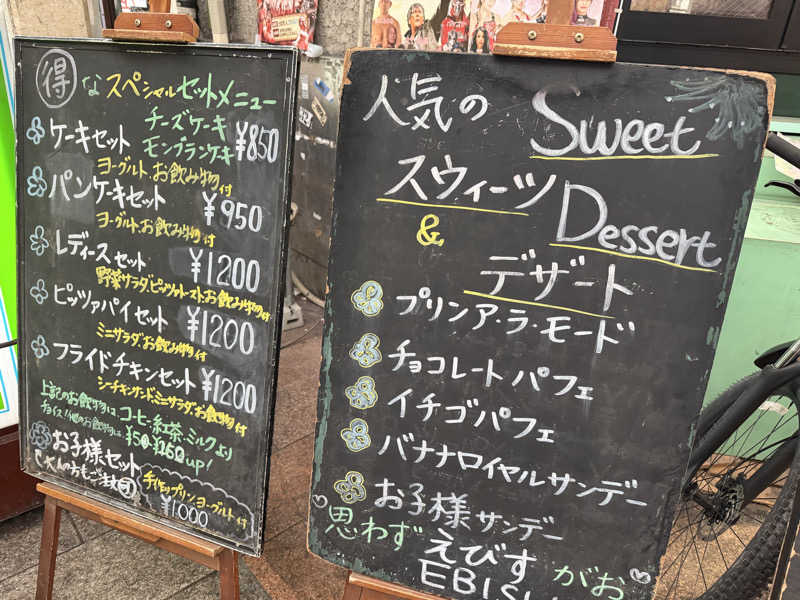 得なスペシャルセットメニュー
ケーキセット チーズケーキ モンブランケーキ ¥850
ヨーグルト、お飲み物付
パンケーキセット ¥950
ヨーグルト、お飲み物付
レディースセット ¥1200
野菜サラダ ピッツァトースト お飲み物付
ピッツァパイセット ¥1200
ミニサラダ、お飲み物付
フライドチキンセット ¥1200
シーチキンサンド ミニサラダ、お飲み物付
上記のお飲物は コーヒー 紅茶 ミルクより
チョイス!!他のお飲物は ¥50~¥150up!
お子様セット
大人の方もご注文 手作りプリン ヨーグルト付
¥1,000
人気の Sweet
スウィーツ
& Dessert
デザート
プリンア・ラ・モード
チョコレートパフェ
イチゴパフェ
バナナロイヤルサンデー
お子様サンデー
思わず えびす がお
EBISU